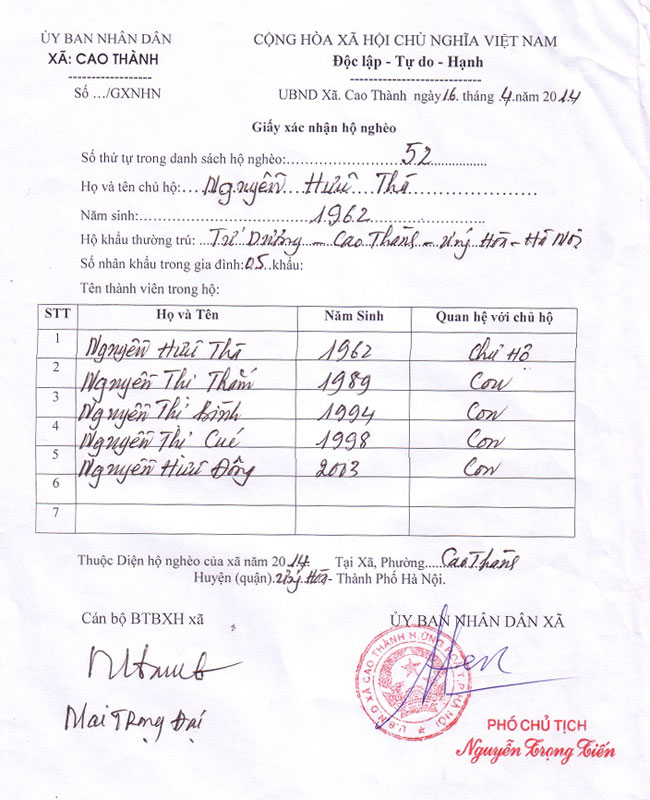 ỦY BAN NHÂN DÂN
XÃ: CAO THÀNH
Số .../GXNHN
CỘNG HÒA XÃ HỘI CHỦ NGHĨA VIỆT NAM
Độc lập - Tự do - Hạnh
UBND Xã. Cao Thành ngày 16. tháng .4.năm 2014
Giấy xác nhận hộ nghèo
Số thứ tự trong danh sách hộ nghèo: 52
Họ và tên chủ hộ: Nguyễn Hữu Thà
Năm sinh: 1962
Hộ khẩu thường trú: Tử Dương - Cao Thành - Ứng Hòa - Hà Nội
Số nhân khẩu trong gia đình: 05 khẩu:
Tên thành viên trong hộ:
STT Họ và Tên Năm Sinh Quan hệ với chủ hộ
1 Nguyễn Hữu Thà 1962 Chủ Hộ
2 Nguyễn Thị Thắm 1989 Con
3 Nguyễn Thị Bình 1994 Con
4 Nguyễn Thị Cúé 1998 Con
5 Nguyễn Hữu Đông 2003 Con
6
7
Thuộc Diện hộ nghèo của xã năm 2014. Tại Xã, Phường Cao Thành
Huyện (quận). Ứng Hòa - Thành Phố Hà Nội.
Cán bộ BTBXH xã
ỦY BAN NHÂN DÂN XÃ
U.B.N.D XÃ CAO THÀNH H. ỨNG HÒA T.P HÀ NỘI
Mai Trọng Đại
PHÓ CHỦ TỊCH
Nguyễn Trọng Tiến